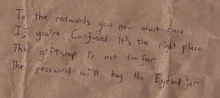 To the redwoods you now must face
If you're Confused it's the right place
The giftshop is not too far
The password will buy the Eyeball jar